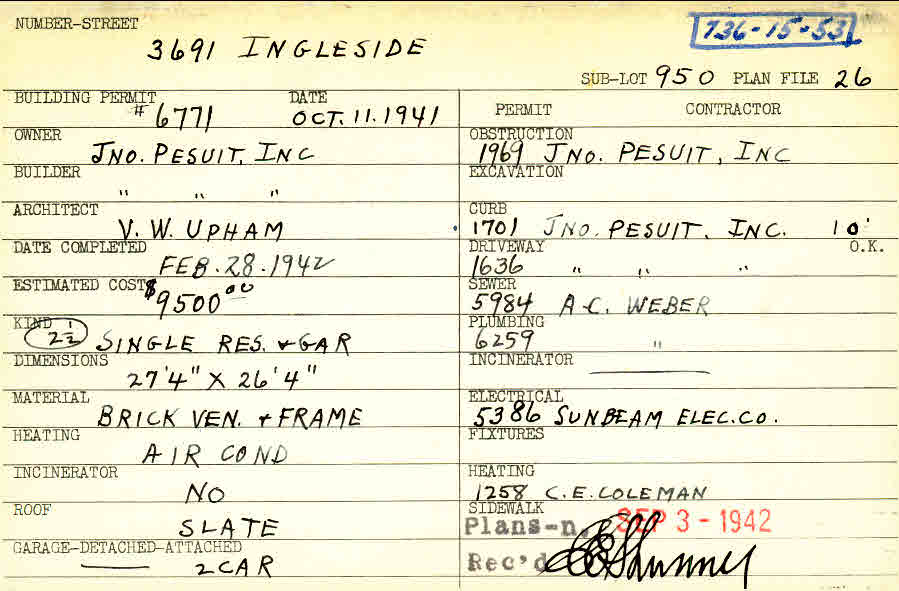 NUMBER-STREET
3691 INGLESIDE
736-15-53
SUB-LOT 950 PLAN FILE 26
BUILDING PERMIT DATE
# 6771 OCT. 11. 1941
OWNER
JNO. PESUIT, INC
BUILDER
" " "
ARCHITECT
V. W. UPHAM
DATE COMPLETED
FEB. 28. 1942
ESTIMATED COST
$9500.00
KIND
2 1/2 SINGLE RES. & GAR
DIMENSIONS
27'4" X 26'4"
MATERIAL
BRICK VEN. & FRAME
HEATING
AIR COND
INCINERATOR
NO
ROOF
SLATE
GARAGE-DETACHED-ATTACHED
2 CAR
PERMIT CONTRACTOR
OBSTRUCTION
1969 JNO. PESUIT, INC
EXCAVATION
CURB
1701 JNO. PESUIT. INC. 10'
DRIVEWAY O.K.
1636 " " "
SEWER
5984 A.C. WEBER
PLUMBING
6259 "
INCINERATOR
ELECTRICAL
5386 SUNBEAM ELEC. CO.
FIXTURES
HEATING
1258 C.E. COLEMAN
SIDEWALK
Plans-n. SEP 3 - 1942
Rec'd